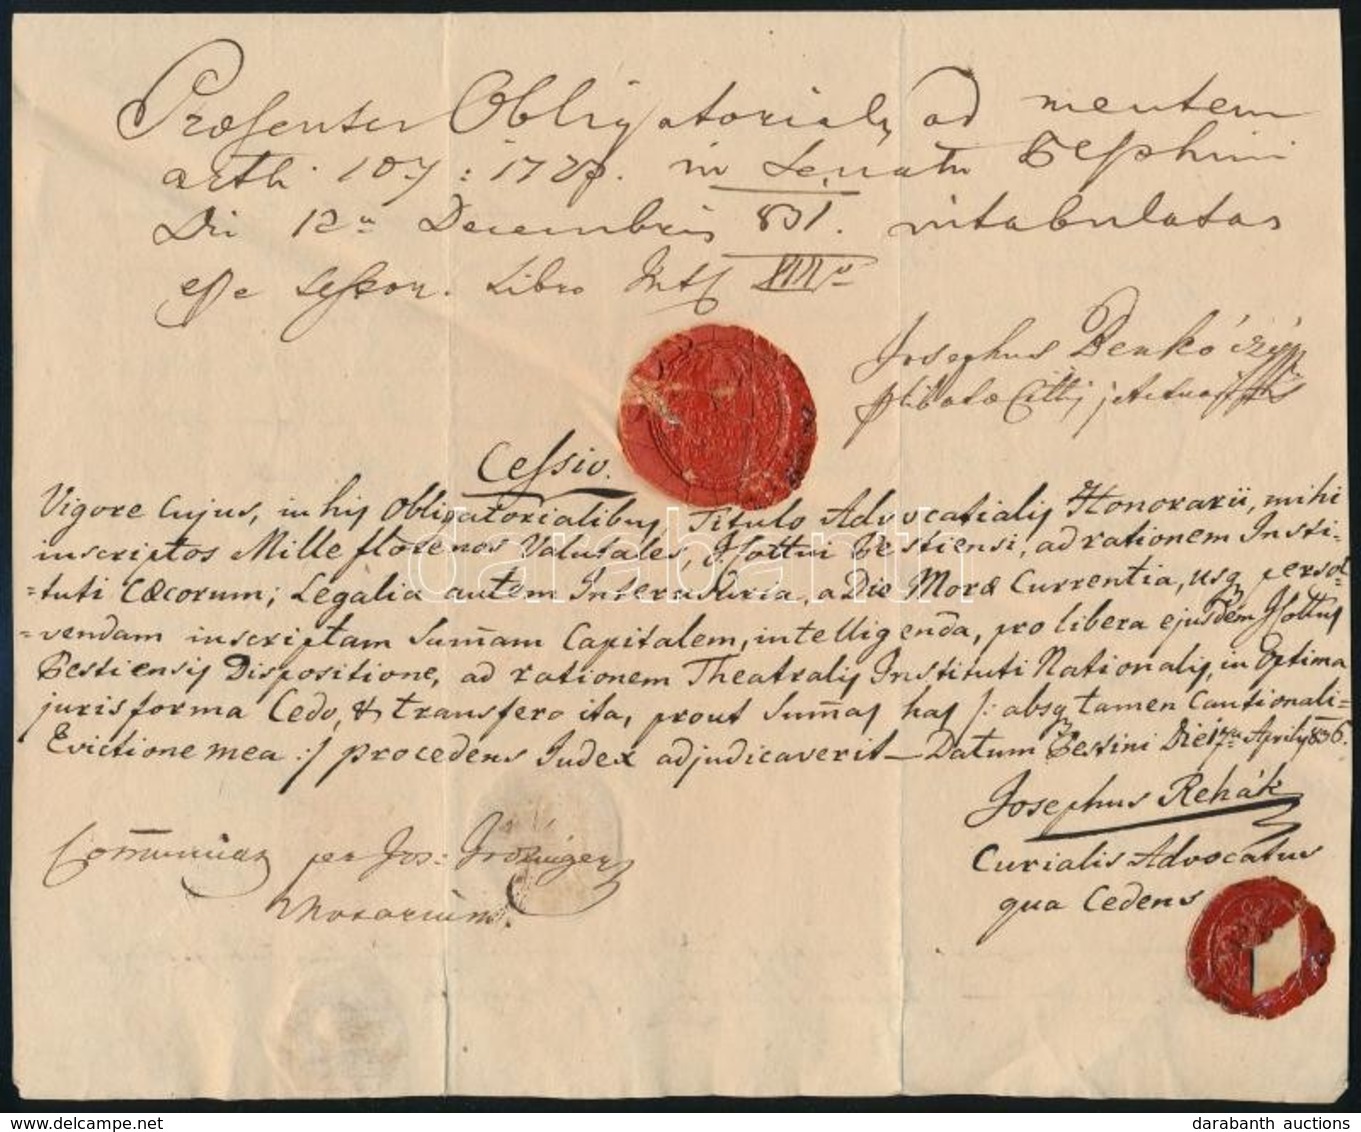 Præsentes Obligatoriales ad mentem
arthi 107: 172. in Senatu Pesthini
Die 12a Decembris 831. intabulatas
esse testor. Libro Int VIIIo
Josephus Benkó
Cessio.
Vigore Cujus, in his Obligatorialibus, Titulo Advocatialis Honorarii, mihi
inscriptos Mille florenos Valutales, I. Cottui Pestiensi, ad rationem Insti-
=tuti Cæcorum; Legalia autem Interusuria, a Die Moræ Currentia, usq persol-
=vendam inscriptam Sum̄am Capitalem, intelligenda, pro libera ejusdem I. Cottus
Pestiensis Dispositione, ad rationem Theatralis Instituti Nationalis, in Optima
juris forma Cedo, & transfero ita, prout Sum̄as has /: absq tamen Cautionali=
Evictione mea :/ procedens Judex adjudicaverit — Datum Pestini Die 17a Aprilis 836.
Josephus Rehák
Curialis Advocatus
qua Cedens
per Jos:
Notarium.
darabanth
darabanth auctions
www.delcampe.net